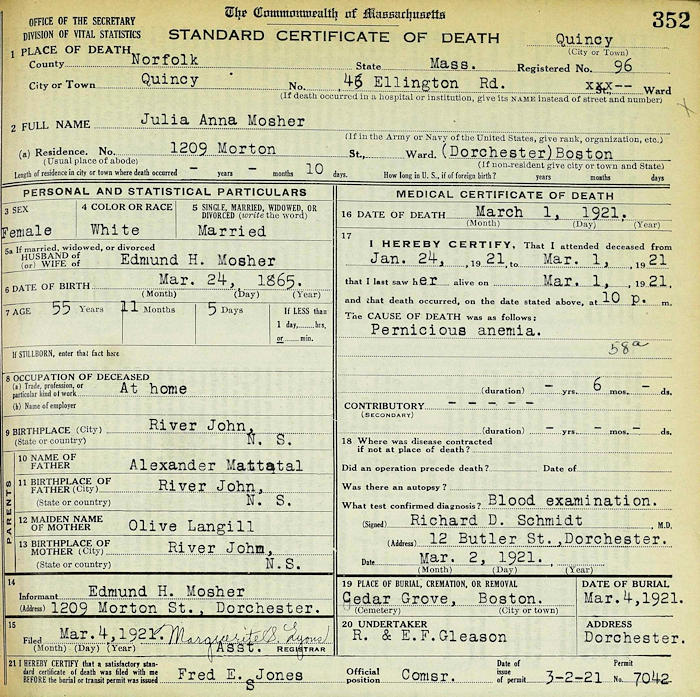 The Commonwealth of Massachusetts
352
OFFICE OF THE SECRETARY
DIVISION OF VITAL STATISTICS
STANDARD CERTIFICATE OF DEATH
Quincy
(City or Town)
1 PLACE OF DEATH
County Norfolk State Mass. Registered No. 96
City or Town Quincy No. 46 Ellington Rd. xxx-- Ward
(If death occurred in a hospital or institution, give its NAME instead of street and number)
2 FULL NAME Julia Anna Mosher
(If in the Army or Navy of the United States, give rank, organization, etc.)
(a) Residence. No. 1209 Morton St., Ward. (Dorchester) Boston
(Usual place of abode) (If non-resident give city or town and State)
Length of residence in city or town where death occurred - years - months 10 days. How long in U. S., if of foreign birth? years months days
PERSONAL AND STATISTICAL PARTICULARS
3 SEX 4 COLOR OR RACE 5 SINGLE, MARRIED, WIDOWED, OR
DIVORCED (write the word)
Female White Married
5a If married, widowed, or divorced
HUSBAND of
(or) WIFE of Edmund H. Mosher
6 DATE OF BIRTH Mar. 24, 1865.
(Month) (Day) (Year)
7 AGE 55 Years 11 Months 5 Days If LESS than
1 day,....hrs.
or....min.
If STILLBORN, enter that fact here
8 OCCUPATION OF DECEASED
(a) Trade, profession, or
particular kind of work At home
(b) Name of employer
9 BIRTHPLACE (City) River John,
(State or country) N. S.
PARENTS
10 NAME OF
FATHER Alexander Mattatal
11 BIRTHPLACE OF
FATHER (City) River John,
(State or country) N. S.
12 MAIDEN NAME
OF MOTHER Olive Langill
13 BIRTHPLACE OF
MOTHER (City) River John,
(State or country) N.S.
14
Informant Edmund H. Mosher
(Address) 1209 Morton St., Dorchester.
15
Filed Mar. 4, 1921. Marguerite S. Lyons
(Month) (Day) (Year) Asst. REGISTRAR
MEDICAL CERTIFICATE OF DEATH
16 DATE OF DEATH March 1, 1921.
(Month) (Day) (Year)
17
I HEREBY CERTIFY, That I attended deceased from
Jan. 24, , 1921, to Mar. 1, , 1921
that I last saw her alive on Mar. 1, , 1921
and that death occurred, on the date stated above, at 10 p. m.
The CAUSE OF DEATH was as follows:
Pernicious anemia.
58a
(duration) - yrs. 6 mos. - ds.
CONTRIBUTORY - - - - -
(SECONDARY)
(duration) - yrs. - mos. - ds.
18 Where was disease contracted
if not at place of death?
Did an operation precede death? Date of
Was there an autopsy?
What test confirmed diagnosis? Blood examination.
(Signed) Richard D. Schmidt , M.D.
(Address) 12 Butler St., Dorchester.
Date Mar. 2, 1921.
(Month) (Day) (Year)
19 PLACE OF BURIAL, CREMATION, OR REMOVAL DATE OF BURIAL
Cedar Grove, Boston. Mar. 4, 1921.
(Cemetery) (City or town)
20 UNDERTAKER ADDRESS
R. & E.F. Gleason Dorchester.
21 I HEREBY CERTIFY that a satisfactory stan-
dard certificate of death was filed with me
BEFORE the burial or transit permit was issued Fred E. Jones
S
Official
position Comsr. Date of
issue
of permit 3-2-21 Permit
No. 7042